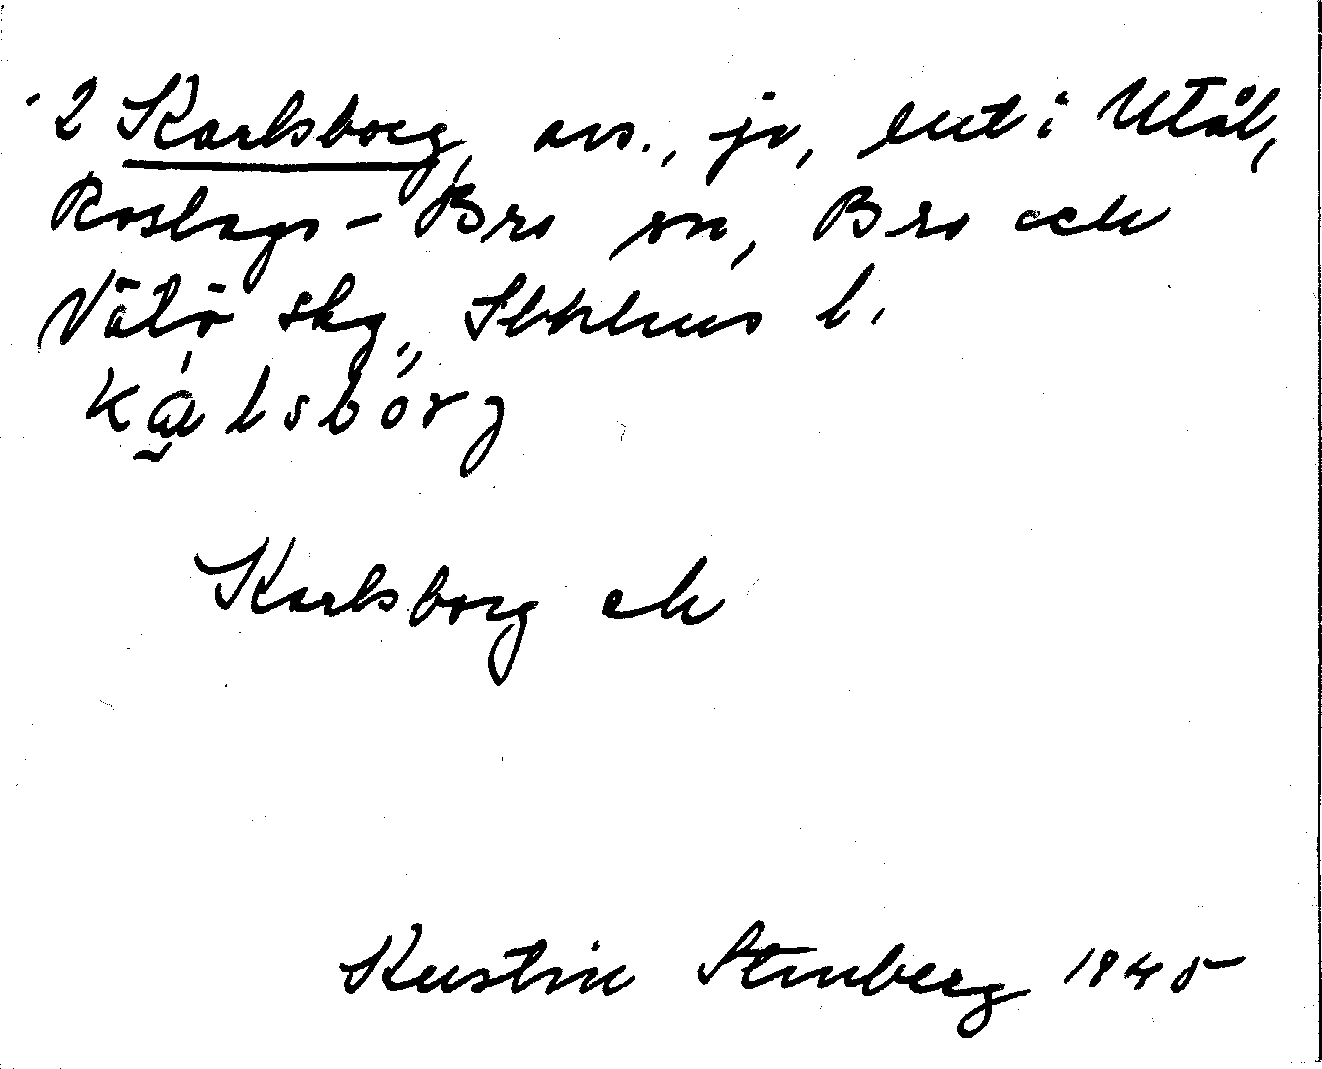 2 Karlsborg, avs., jr, ent i Utål,
Roslags-Bro sn, Bro och
Vätö skg, Sthlms l.
kálsbòrj
Karlsborg ek
Kerstin Stenberg 1945